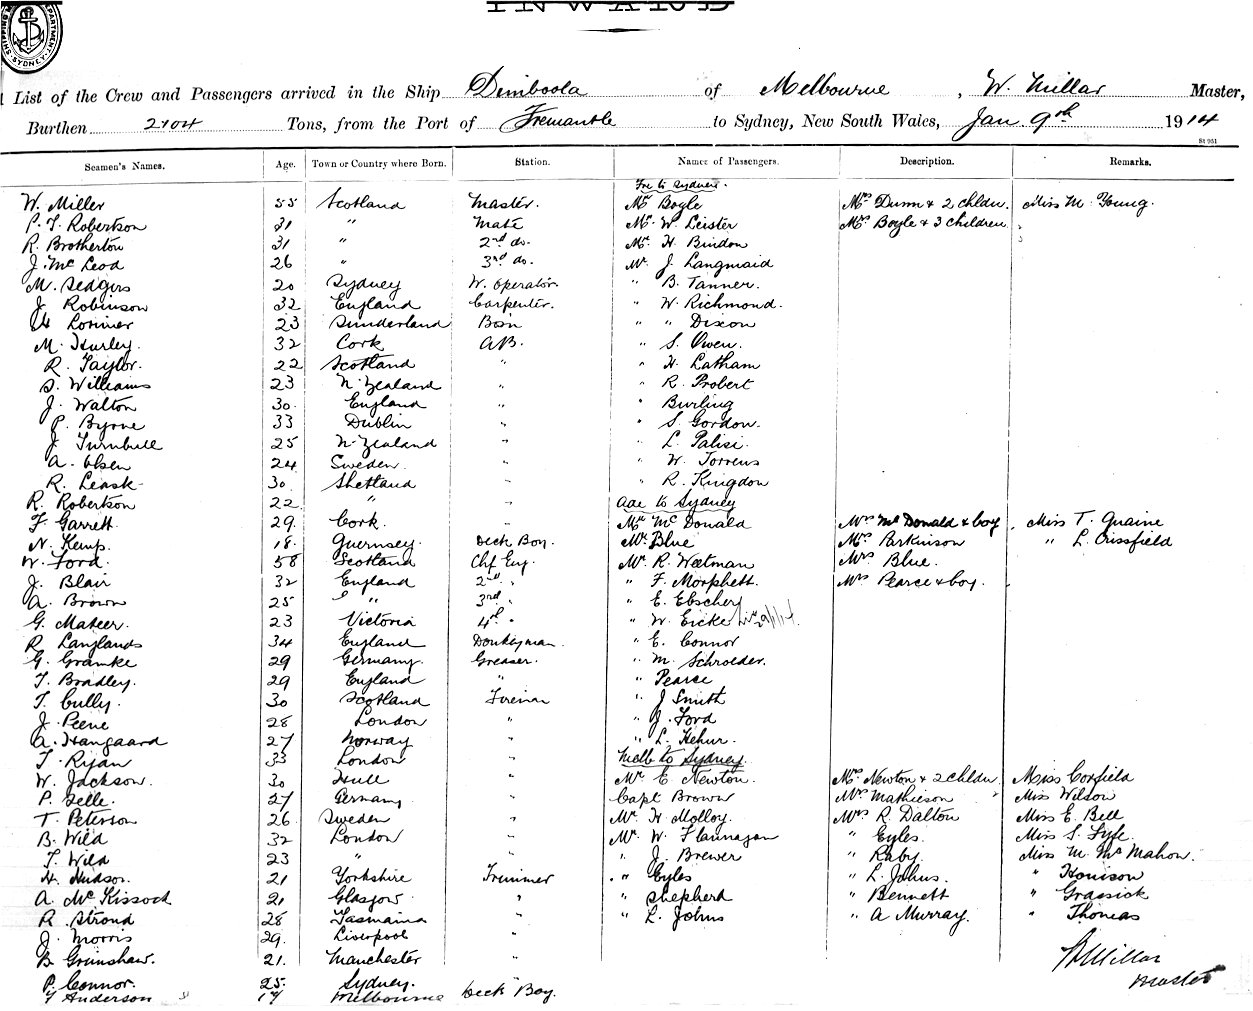 INWARD
SHIPPING DEPARTMENT SYDNEY
List of the Crew and Passengers arrived in the Ship Dimboola of Melbourne, W. Millar Master,
Burthen 2104 Tons, from the Port of Fremantle to Sydney, New South Wales, Jan 9th 1914
St 951
Seamen's Names. Age. Town or Country where Born. Station. Names of Passengers. Description. Remarks.
Fre to Sydney.
W. Miller 55 Scotland Master. Mr Boyle Mrs Dunn & 2 chldn. Miss M. Young.
P. T. Robertson 31 " Mate Mr. W. Leister Mrs Boyle & 3 children
R. Brotherton 31 " 2nd do. Mr. H. Bindon
J. McLeod 26 " 3rd do. Mr. J. Langmaid
M. Sedgers 20 Sydney W. Operator. " B. Tanner.
J. Robinson 32 England Carpenter. " W. Richmond.
Lorimer 23 Sunderland Bosn " " Dixon
M. Hurley. 32 Cork A.B. " S. Owen.
R. Taylor. 22 Scotland " " H. Latham
S. Williams 23 N. Zealand " " R. Probert
J. Walton 30. England " " Burling
P. Byrne 33 Dublin " " S. Gordon.
J. Turnbull 25 N. Zealand " " L. Palise.
A. Olsen 24 Sweden. " " W. Torrens
R. Leask 30. Shetland " " R. Kingdon
R. Robertson 22 " " Ade to Sydney
F. Garrett. 29. Cork. " Mr McDonald Mrs McDonald & boy Miss T. Quaine
N. Kemp. 18. Guernsey. Deck Boy. Mr. Blue Mrs. Parkinson " L. Crissfield
W. Ford. 58 Scotland Chf Eng. Mr. R. Weetman Mrs Blue.
J. Blair 32 England 2nd " " F. Morphett. Mrs Pearce & boy.
A. Brown 25 " 3rd " " E. Ebschery
G. Mateer. 23 Victoria 4th " " W. Eicke
R. Langlands 34 England Donkeyman. " E. Connor
G. Gramke 29 Germany. Greaser. " M. Schroeder.
T. Bradley. 29 England " " Pearce
T. Cully. 30 Scotland Fireman " J Smith
J. Peene 28 London " " J. Ford
A. Haugaard 27 Norway " " L. Kehur.
T. Ryan 33 London " Melb to Sydney.
W. Jackson. 30 Hull " Mr E Newton. Mrs. Newton & 2 chldn. Miss Corfield
P. Gelle. 27 Germany " Capt Brown Mrs Mathieson Miss Wilson
T. Peterson 26 Sweden " Mr H Molloy. Mrs R. Dalton Miss E. Bell
B. Wild 32 London " Mr. W. Flannagan " Eyles. Miss S. Fyfe.
T. Wild 23 " " " J. Brewer " Raby. Miss M. McMahon.
H. Hudson. 21 Yorkshire Trimmer " Eyles " L. Johns. " Honison
A. McKissock 21 Glasgow. " " Shepherd " Bennett " Grassick
R. Stroud 28 Tasmania " " L. Johns " A Murray. " Thomas
J. Morris 29. Liverpool "
B. Grimshaw. 21. Manchester "
P. Connor. 25. Sydney. "
Anderson 17 Melbourne Deck Boy.
W Millar
Master